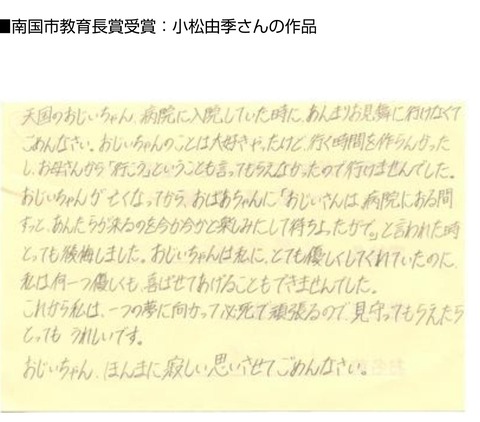 ■南国市教育長賞受賞：小松由季さんの作品
天国のおじいちゃん、病院に入院していた時に、あんまりお見舞に行けなくて
ごめんなさい。おじいちゃんのことは大好きやったけど、行く時間を作らんかった
し、お母さんから「行こう」ということも言ってもらえなかったので行けませんでした。
おじいちゃんが亡くなってから、おばあちゃんに「おじいさんは、病院にある間
ずっと、あんたらが来るのを今か今かと楽しみにして待ちよったがで。」と言われた時
とっても後悔しました。おじいちゃんは私に、とても優しくしてくれていたのに、
私は何一つ優しくも、喜ばせてあげることもできませんでした。
これから私は、一つの夢に向かって必死で頑張るので、見守ってもらえたら
とっても うれしいです。
おじいちゃん、ほんまに寂しい思いさせてごめんなさい。